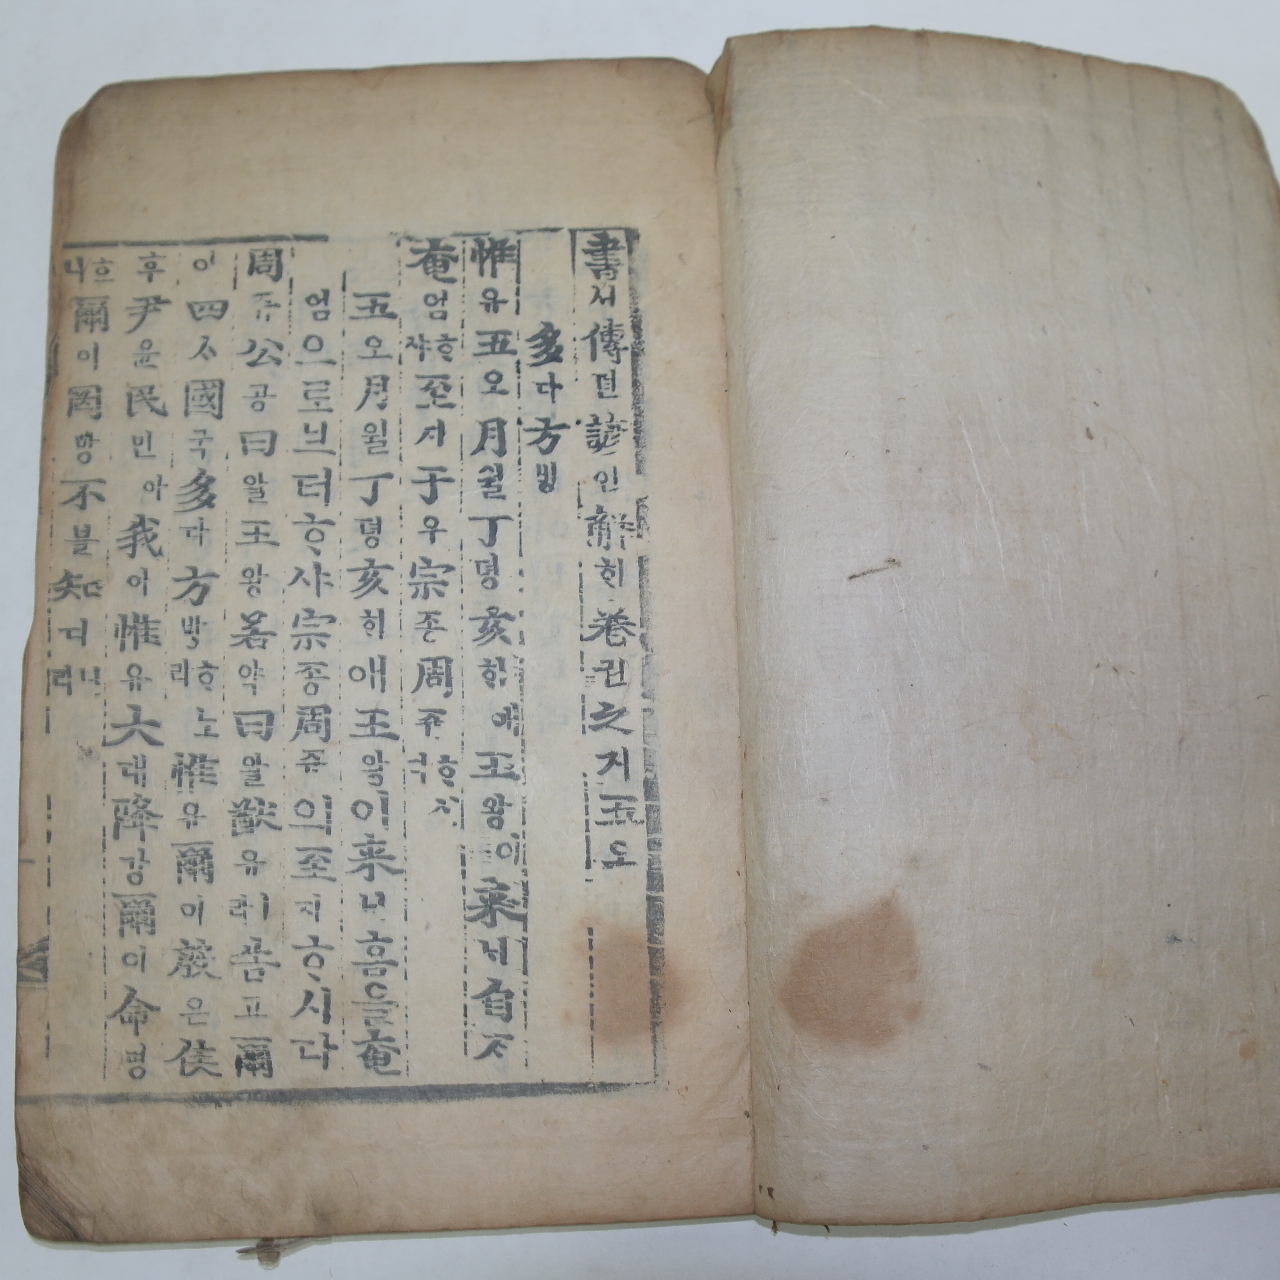 書셔傳뎐諺언解ᄒᆡ卷권之지五오
多다方방
惟유五오月월丁뎡亥ᄒᆡ애王왕이來ᄅᆡ自ᄌᆞ
奄엄ᄒᆞ샤至지于우宗종周쥬ᄒᆞ시다
五오月월丁뎡亥ᄒᆡ애王왕이來ᄅᆡᄒᆞᆷ을奄
엄으로브터ᄒᆞ샤宗종周쥬의至지ᄒᆞ시다
周쥬公공曰왈王왕若약曰왈猷유ㅣ라誥고爾
이四ᄉᆞ國국多다方방ᄒᆞ노라惟유爾이殷은侯
후尹윤民민아我아惟유大대降강爾이命명
ᄒᆞ니爾이罔망不블知디니라